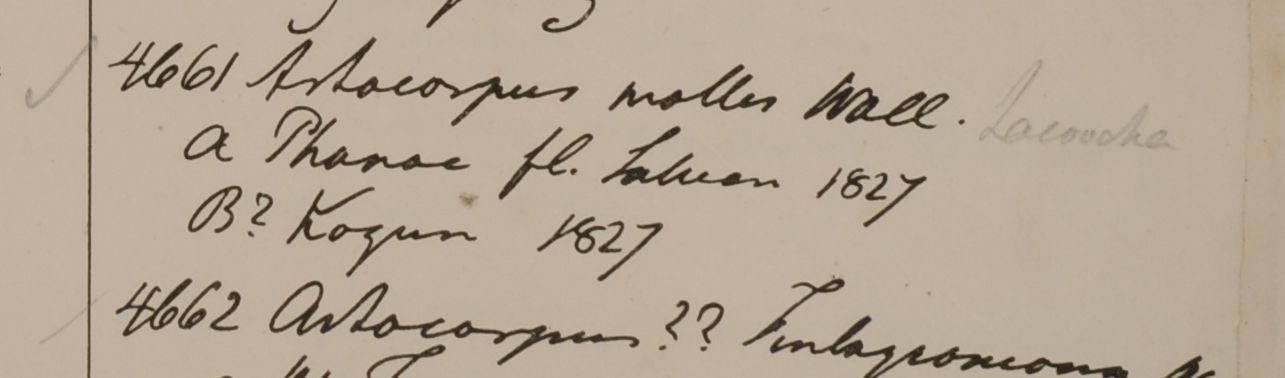 4661 Artocarpus mollis Wall. Lacoocha
a Phanae fl. Saluen 1827
B? Kogun 1827
4662 Artocarpus ?? Finlaysoniana